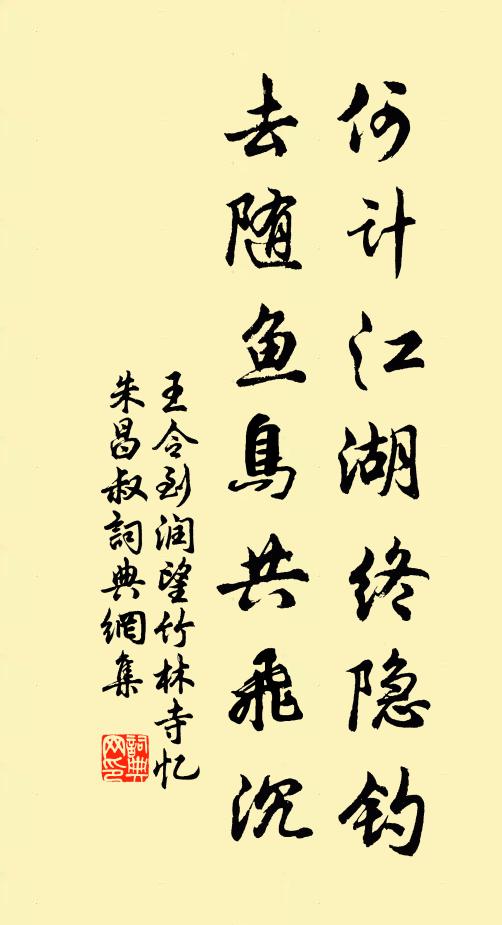 何计江湖终隐钓
去随鱼鳥共飛沉
王令到润望竹林寺忆
朱昌叔詞典網集
詞典網印